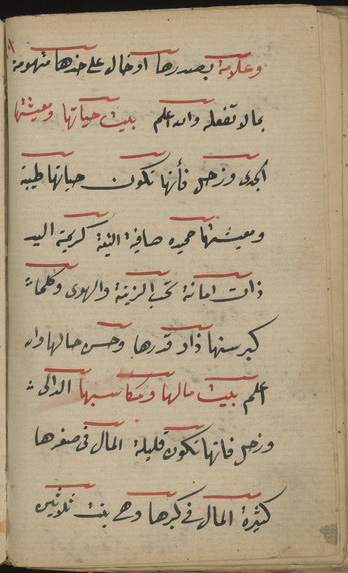 وعلامة بصدرها او خال على خدها متهومة
بما لا تفعله والله اعلم بيت حياتها ومعيشتها
الجدى وزحل فأنها تكون حياتها طيبة
ومعيشتها حميده صافية النية كريمة اليد
ذات امانة تحب الزينة والهوى وكلما
كبر سنها ذاد قدرها وحسن حالها والله
اعلم بيت مالها ومكاسبها الدالى
وزحل فانها تكون قليلة المال فى صغرها
كثيرة المال فى كبرها وهى بنت ثلاثين